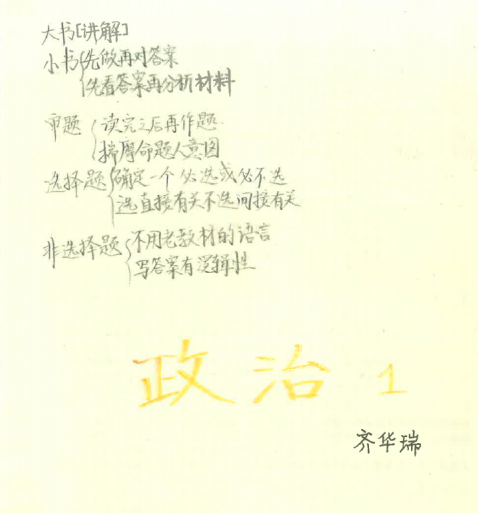 大书[讲解]
小书{先做再对答案
{先看答案再分析材料
审题{读完之后再作题.
{揣摩命题人意图
选择题{确定一个必选或必不选
{选直接有关不选间接有关
非选择题{不用老教材的语言
{写答案有逻辑性
政治 1
齐华瑞